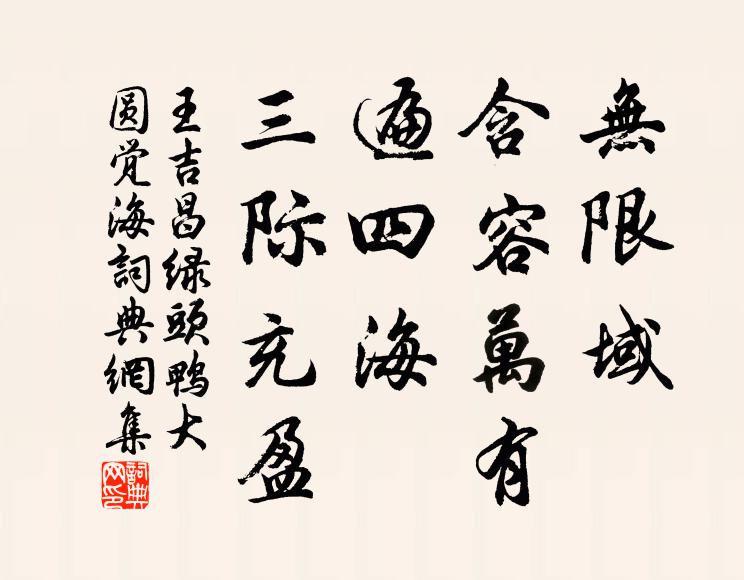 無限域
含容萬有
遍四海
三际充盈
王吉昌绿頭鴨大
圆觉海詞典網集
詞典
网印